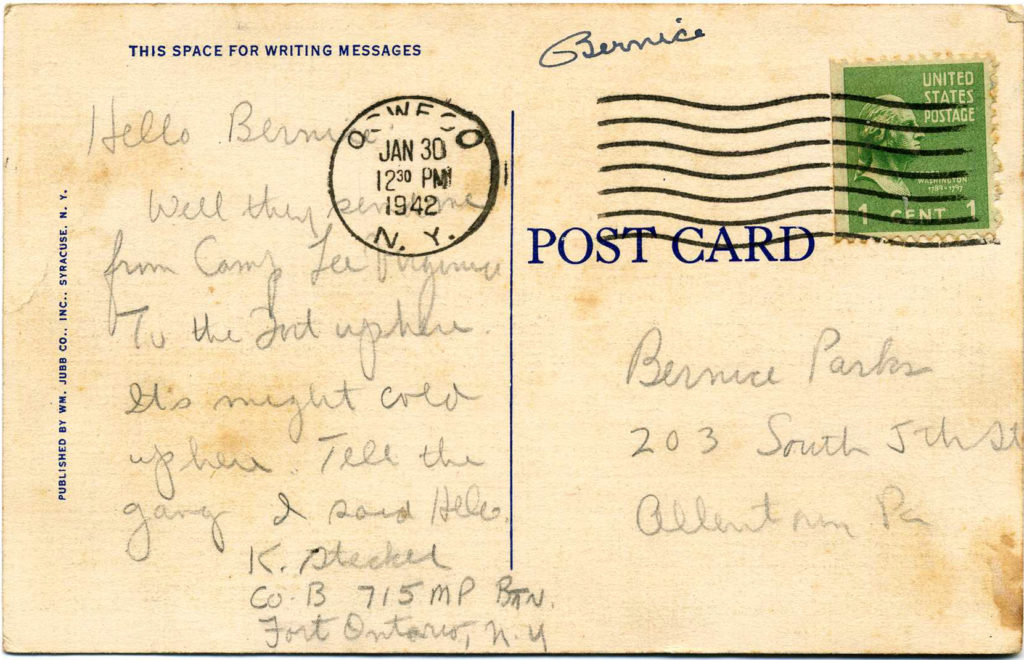 THIS SPACE FOR WRITING MESSAGES
Bernice
Hello Bernice
OSWEGO
JAN 30
12 30 PM
1942
N. Y.
UNITED
STATES
POSTAGE
WASHINGTON
1789-1797
1 CENT 1
Well they sent me
from Camp Lee Virginia
To the Fort up here.
It's might cold
up here. Tell the
gang I said Hello.
K. Steckel
Co B 715 MP BTN.
Fort Ontario, N.Y
POST CARD
Bernice Parks
203 South 5th St
Allentown Pa
PUBLISHED BY WM. JUBB CO., INC., SYRACUSE, N. Y.